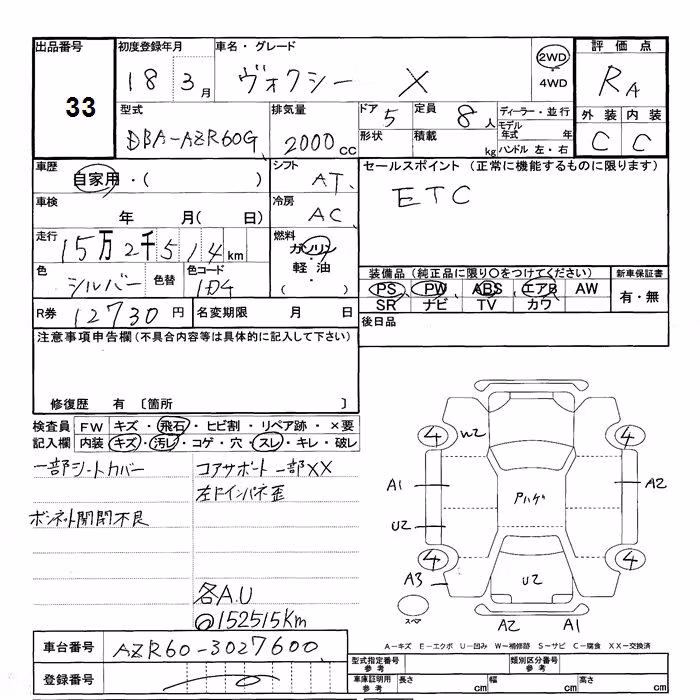 出品番号 33
初度登録年月 18 3月
車名・グレード ヴォクシー X
2WD
4WD
評価点 RA
外装 内装
C C
型式 DBA-AZR60G
排気量 2000cc
ドア 5 定員 8人
形状 積載 kg
ディーラー・並行
モデル年式 年
ハンドル 左・右
車歴 自家用・( )
シフト AT
セールスポイント (正常に機能するものに限ります)
ETC
車検 年 月( 日)
冷房 AC
走行 15万2千514km
燃料 ガソリン・軽油 ( )
色 シルバー 色替 色コード 1D4
装備品 (純正品に限り○をつけてください) 新車保証書
PS PW ABS エアB AW 有・無
SR ナビ TV カワ
R券 12730円 名変期限 月 日
後日品
注意事項申告欄 (不具合内容等は具体的に記入して下さい)
修復歴 有 〔箇所 〕
検査員 FW キズ・飛石・ヒビ割・リペア跡・×要
記入欄 内装 キズ・汚レ・コゲ・穴・スレ・キレ・破レ
一部シートカバー
ボンネット開閉不良
コアサポート一部XX
左ドインパネ歪
各A.U
152515Km
4 W2 4
A1 アハゲ A2
U2
4 4
A3 U2
スペア A2 A1
A-キズ E-エクボ U-凹み W-補修跡 S-サビ C-腐食 XX-交換済
車台番号 AZR60-3027600
登録番号
型式指定番号 参考 類別区分番号 参考
車庫証明用 参考 長さ cm 幅 cm 高さ cm